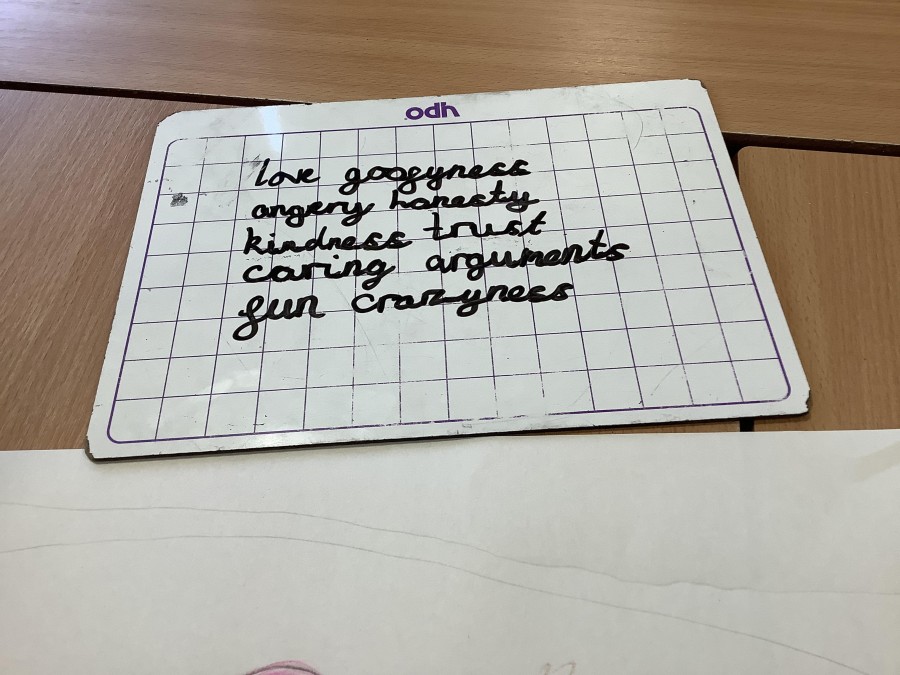 ypo
love goofyness
angery honesty
kindness trust
caring arguments
fun crazyness